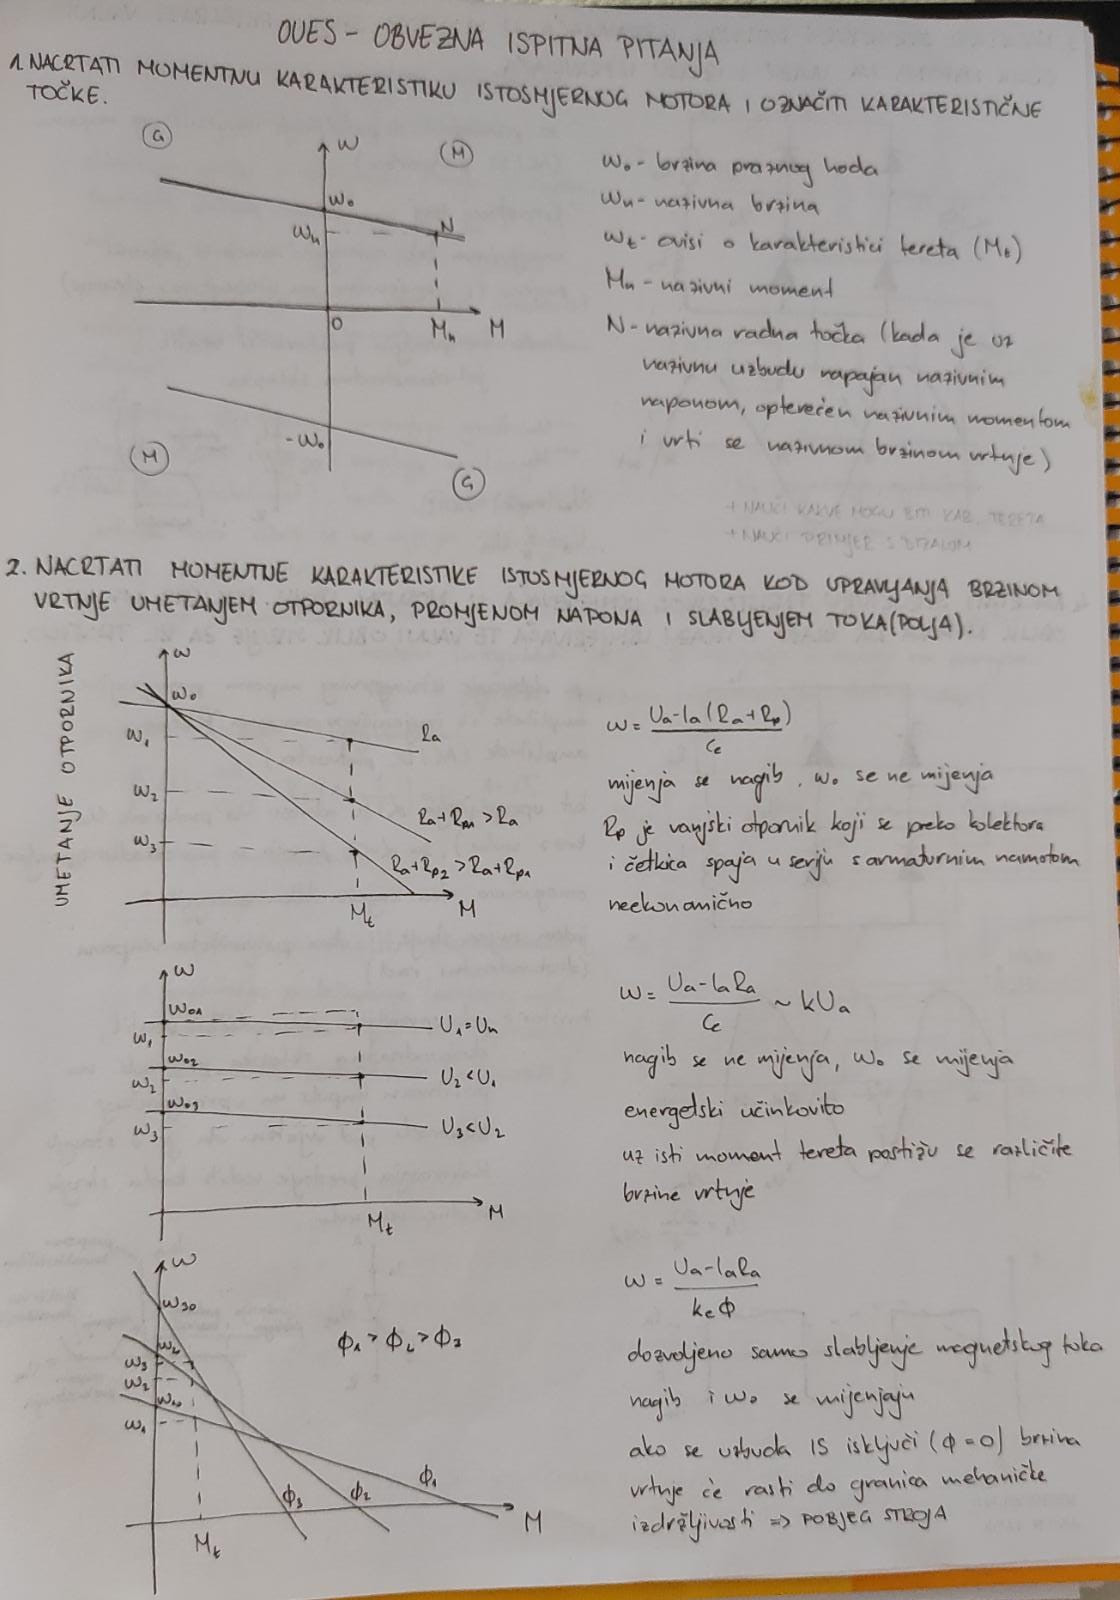 OUES - OBVEZNA ISPITNA PITANJA
1. NACRTATI MOMENTNU KARAKTERISTIKU ISTOSMJERNOG MOTORA I OZNAČITI KARAKTERISTIČNE
TOČKE.
G
ω
M
ω₀
ωn
N
0
Mn
M
-ω₀
M
G
ω₀ - brzina praznog hoda
ωn - nazivna brzina
ωt - ovisi o karakteristici tereta (Mt)
Mn - nazivni moment
N - nazivna radna točka (kada je uz
nazivnu uzbudu napajan nazivnim
naponom, opterećen nazivnim momentom
i vrti se nazivnom brzinom vrtnje)
+ NAUČI KAKVE MOGU BITI KAR. TERETA
+ NAUČI PRIMJER S DIZALOM
2. NACRTATI MOMENTNE KARAKTERISTIKE ISTOSMJERNOG MOTORA KOD UPRAVLJANJA BRZINOM
VRTNJE UMETANJEM OTPORNIKA, PROMJENOM NAPONA I SLABLJENJEM TOKA (POLJA).
UMETANJE OTPORNIKA
ω
ω₀
ω₁
Ra
ω₂
Ra+Rp1 > Ra
ω₃
Ra+Rp2 > Ra+Rp1
Mt
M
ω = (Ua - Ia(Ra+Rp)) / Ce
mijenja se nagib, ω₀ se ne mijenja
Rp je vanjski otpornik koji se preko kolektora
i četkica spaja u seriju s armaturnim namotom
neekonomično
ω
ω01
ω₁
U₁=Un
ω02
ω₂
U₂<U₁
ω03
ω₃
U₃<U₂
Mt
M
ω = (Ua - IaRa) / Ce ~ kUa
nagib se ne mijenja, ω₀ se mijenja
energetski učinkovito
uz isti moment tereta postižu se različite
brzine vrtnje
ω
ω30
ϕ₁ > ϕ₂ > ϕ₃
ω₃
ω₂
ω₁
ϕ₃
ϕ₂
ϕ₁
Mt
M
ω = (Ua - IaRa) / keϕ
dozvoljeno samo slabljenje magnetskog toka
nagib i ω₀ se mijenjaju
ako se uzbuda IS isključi (ϕ=0) brzina
vrtnje će rasti do granica mehaničke
izdržljivosti => POBJEG STROJA